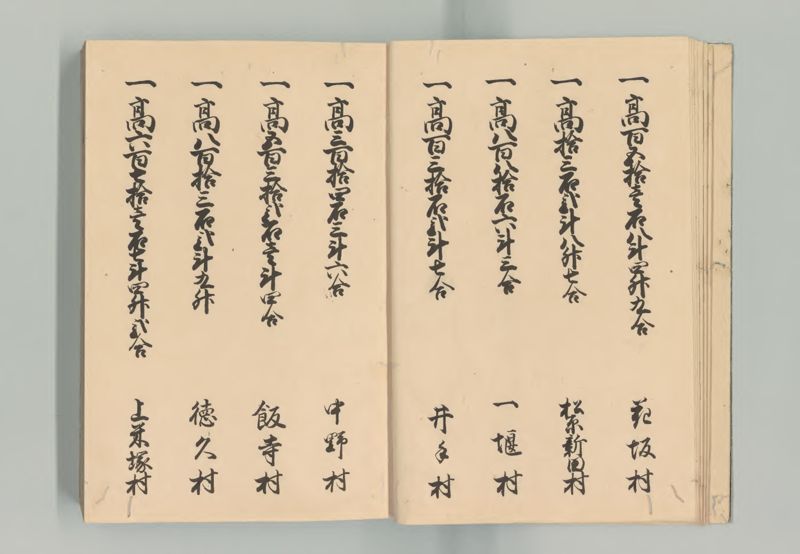 一高百五拾壱石八斗四升九合 花坂村
一高拾三石弐斗八升七合 松原新田村
一高八百八拾石六斗三合 一堰村
一高百三拾石弐斗七合 井手村
一高三百拾四石三斗六合 中野村
一高五百三拾弐石壱斗四合 飯寺村
一高八百拾三石弐斗九升 徳久村
一高六百七拾壱石七斗四升弐合 上米塚村